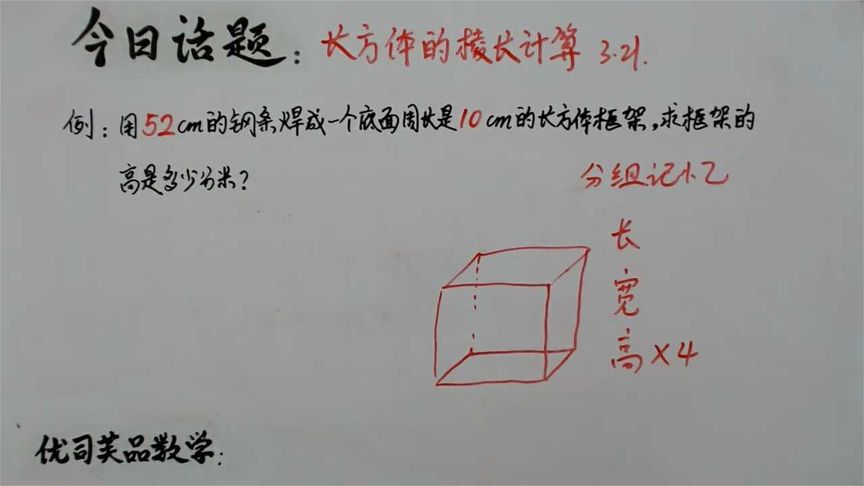 今日话题：长方体的棱长计算 3.21.
例：用52cm的钢条焊成一个底面周长是10cm的长方体框架，求框架的
高是多少分米？
分组记忆
长
宽
高×4
优司芙品数学：